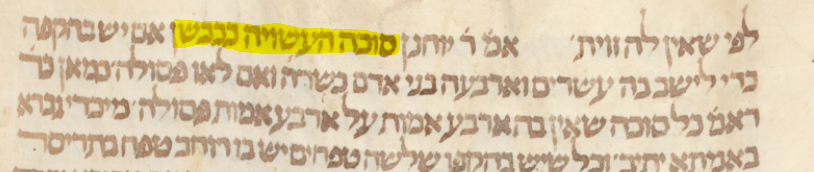 לפי שאין לה זוית׳ אמ׳ ר׳ יוחנן סוכה העשויה ככבשן אם יש בהקפה
כדי לישב בה עשרים וארבעה בני אדם כשרה ואם לאו פסולה׳ כמאן כר׳
דאמ׳ כל סוכה שאין בה ארבע אמות על ארבע אמות פסולה׳ מיכדי גברא
באמתא יתיב׳ וכל שיש בהקפו שלשה טפחים יש בו רוחב טפח בתריסר